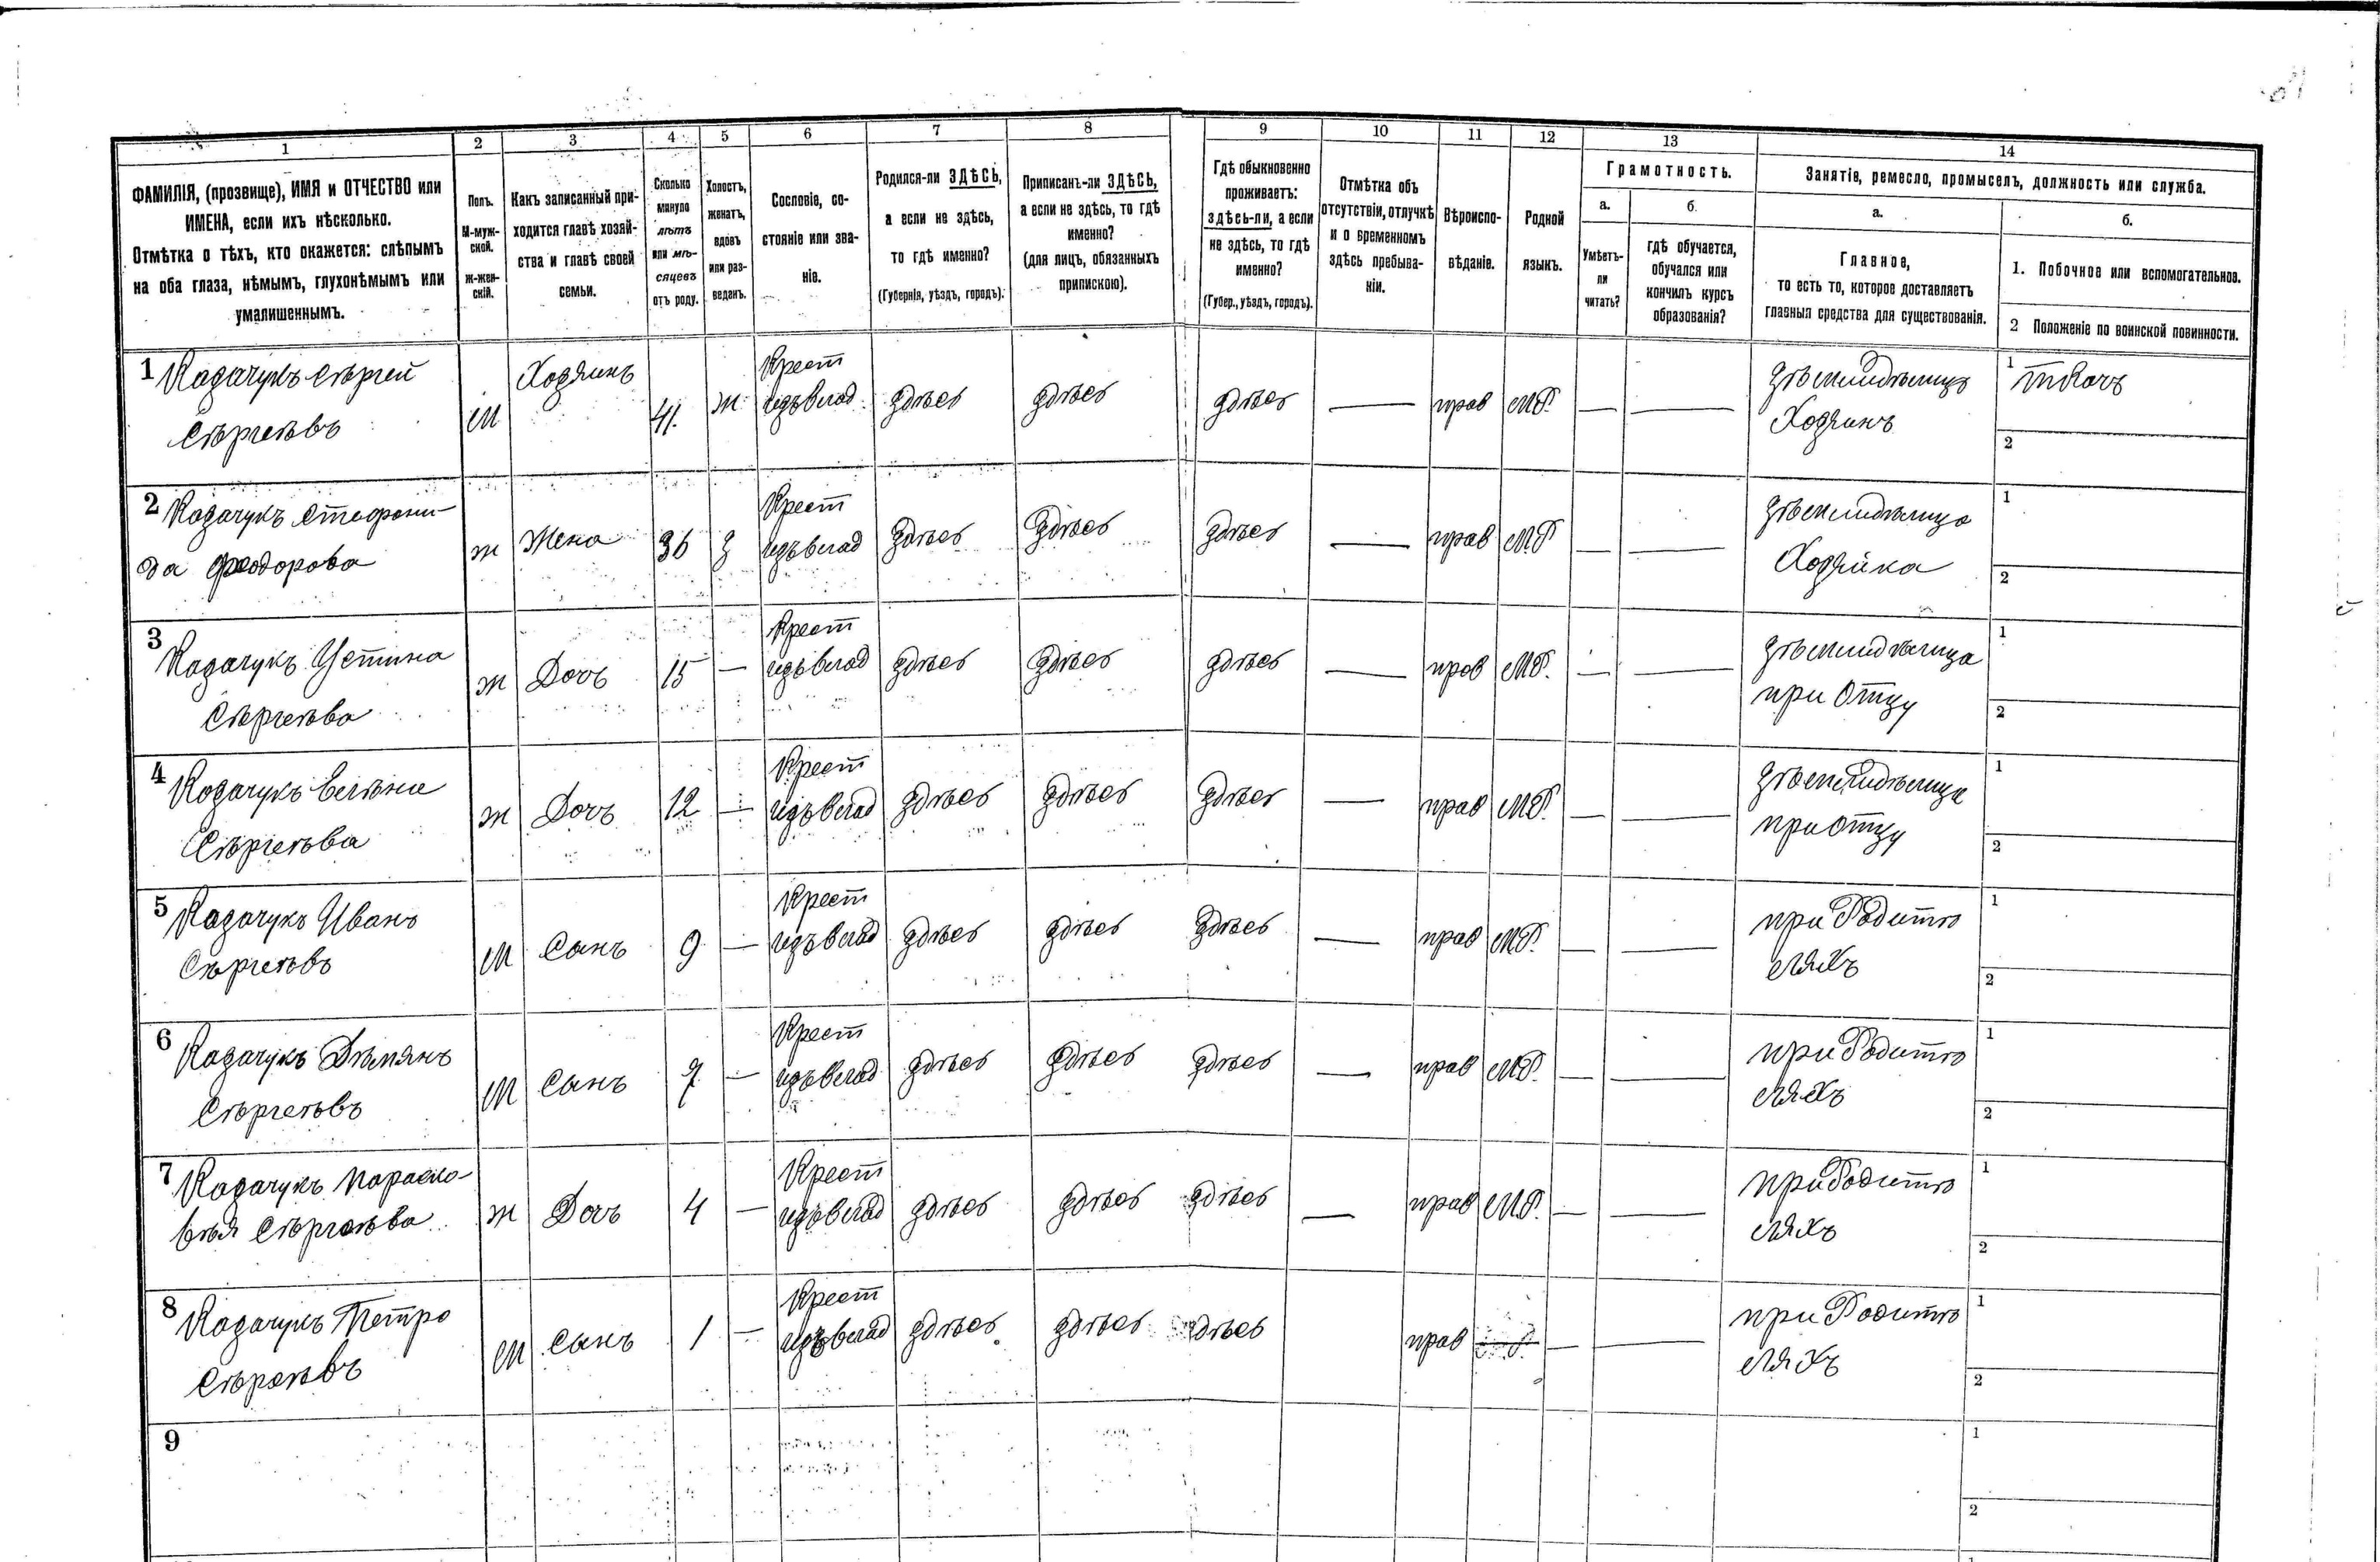 1 2 3 4 5 6 7 8 9 10 11 12 13 14
ФАМИЛІЯ, (прозвище), ИМЯ и ОТЧЕСТВО или
ИМЕНА, если ихъ нѣсколько.
Отмѣтка о тѣхъ, кто окажется: слѣпымъ
на оба глаза, нѣмымъ, глухонѣмымъ или
умалишеннымъ.
Полъ.
М-муж-
ской.
Ж-жен-
скій.
Какъ записанный при-
ходится главѣ хозяй-
ства и главѣ своей
семьи.
Сколько
минуло
лѣтъ
или мѣ-
сяцевъ
отъ роду.
Холостъ,
женатъ,
вдовъ
или раз-
веденъ.
Сословіе, со-
стояніе или зва-
ніе.
Родился-ли ЗДѢСЬ,
а если не здѣсь,
то гдѣ именно?
(Губернія, уѣздъ, городъ).
Приписанъ-ли ЗДѢСЬ,
а если не здѣсь, то гдѣ
именно?
(для лицъ, обязанныхъ
припискою).
Гдѣ обыкновенно
проживаетъ:
здѣсь-ли, а если
не здѣсь, то гдѣ
именно?
(Губер., уѣздъ, городъ).
Отмѣтка объ
отсутствіи, отлучкѣ
и о временномъ
здѣсь пребыва-
ніи.
Вѣроиспо-
вѣданіе.
Родной
языкъ.
Грамотность.
а.
Умѣетъ-
ли
читать?
б.
гдѣ обучается,
обучался или
кончилъ курсъ
образованія?
Занятіе, ремесло, промыселъ, должность или служба.
а.
Главное,
то есть то, которое доставляетъ
главныя средства для существованія.
б.
1. Побочное или вспомогательное.
2 Положеніе по воинской повинности.
1 Казачукъ Сѣргей
Сѣргеѣвъ
М
Хозяинъ
41.
ж
Крест
изъ влад
здѣсь
здѣсь
здѣсь
—
прав
МР.
—
—
Хозяинъ
1 ткачъ
2
2 Казачукъ Стефани-
да Феодорова
ж
Жена
36
З
Крест
изъ влад
здѣсь
здѣсь
здѣсь
—
прав
МР
—
—
Хозяйка
1
2
3
Казачукъ Устина
Сѣргеѣва
ж
Дочь
15
—
Крест
изъ влад
здѣсь
здѣсь
здѣсь
—
прав
МР.
—
—
при Отцу
1
2
4 Казачукъ Елѣна
Сѣргеѣва
ж
Дочь
12
—
Крест
изъ влад
здѣсь
здѣсь
здѣсь
—
прав
МР.
—
—
при Отцу
1
2
5 Казачукъ Иванъ
Сѣргеѣвъ
М
Сынъ
9
—
Крест
изъ влад
здѣсь
здѣсь
здѣсь
—
прав
МР.
—
—
при Родитѣ
ляхъ
1
2
6 Казачукъ Дѣмянъ
Сѣргеѣвъ
М
Сынъ
7
—
Крест
изъ влад
здѣсь
здѣсь
здѣсь
—
прав
МР.
—
—
при Родитѣ
ляхъ
1
2
7 Казачукъ Параско-
вѣя Сѣргеѣва
ж
Дочь
4
—
Крест
изъ влад
здѣсь
здѣсь
здѣсь
—
прав
МР.
—
—
при Родитѣ
ляхъ
1
2
8 Казачукъ Петро
М
Сынъ
1
—
Крест
изъ влад
здѣсь
здѣсь
здѣсь
прав
—
—
при Родитѣ
ляхъ
1
2
9
1
2